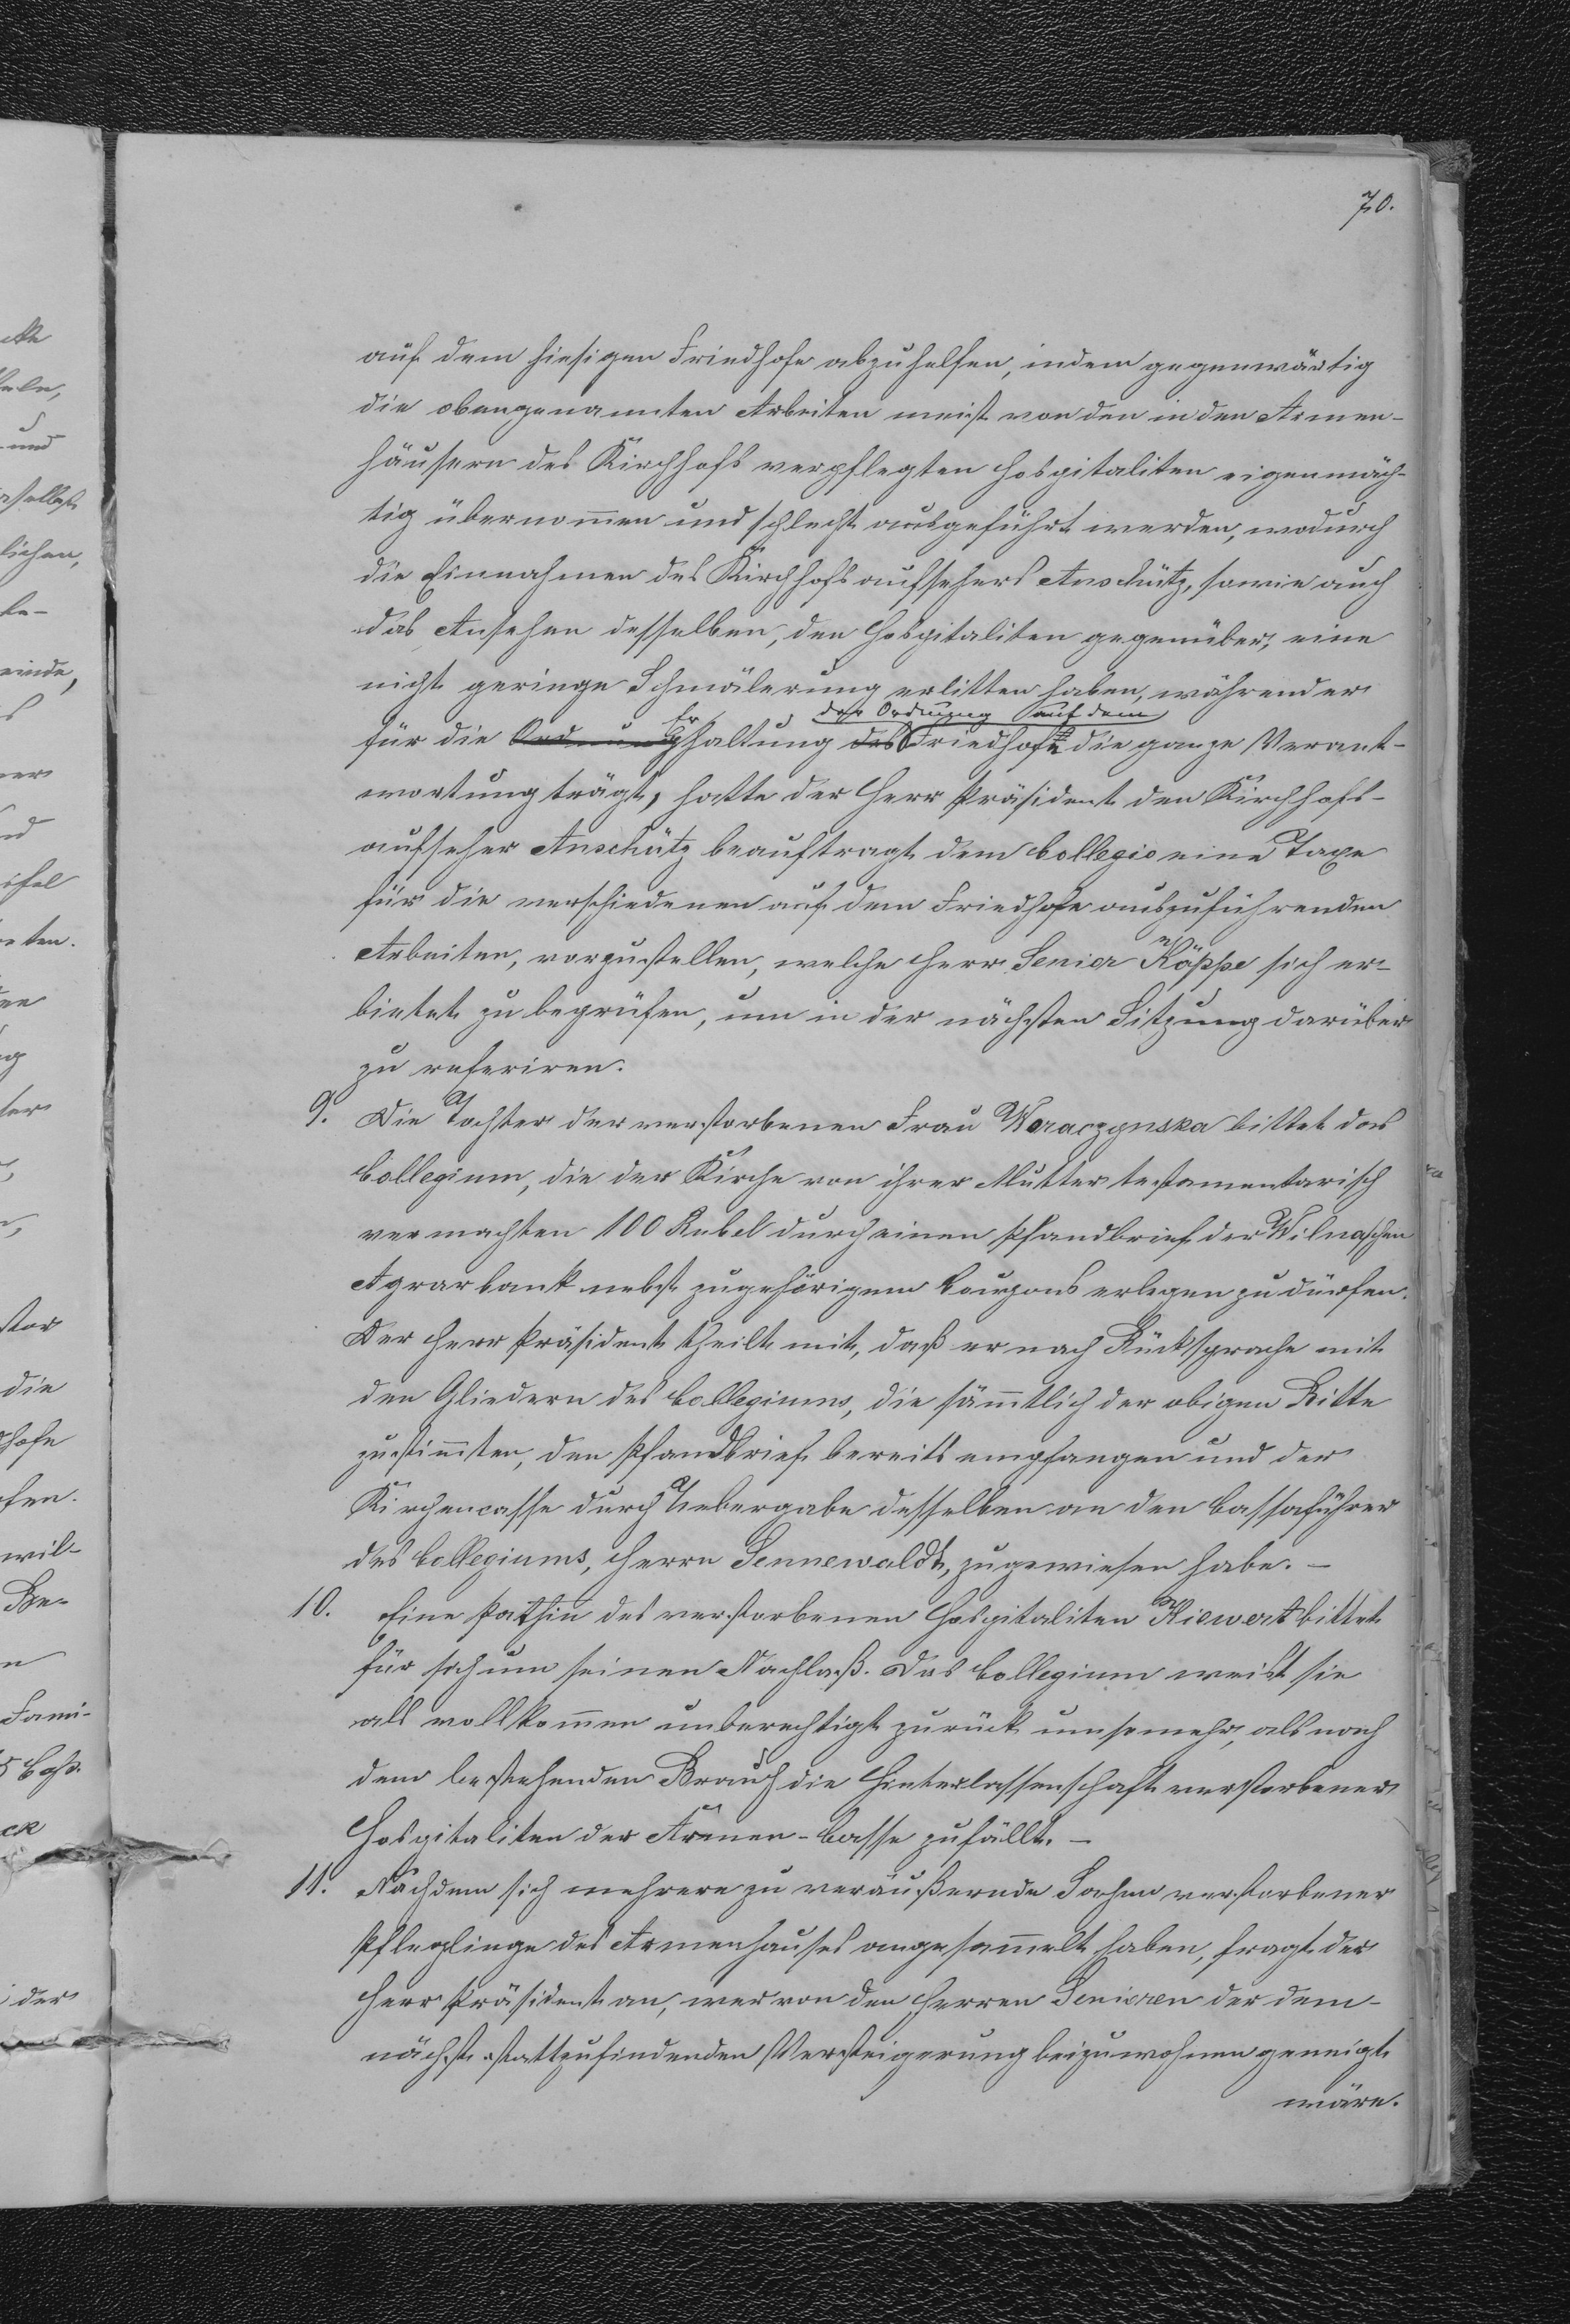 70.
auf dem hiesigen Friedhofe abzuhelfen, indem gegenwärtig
die obengenannten Arbeiten meist von den in den Armen-
häusern des Kirchhofs verpflegten Hospitaliten eigenmäch-
tig übernommen und schlecht ausgeführt werden, wodurch
die Einnahmen des Kirchhofsaufsehers Anschütz, sowie auch
das Ansehen desselben, den Hospitaliten gegenüber, eine
nicht geringe Schmälerung erlitten haben, während er
der Ordnung auf dem
für die Erhaltung des Friedhofe die ganze Verant-
wortung trägt, hatte der Herr Präsident den Kirchhofs-
aufseher Anschütz beauftragt dem Collegio eine Taxe
für die verschiedenen auf dem Friedhofe auszuführenden
Arbeiten, vorzustellen, welche Herr Senior Köppe sich er-
bietet zu beprüfen, um in der nächsten Sitzung darüber
zu referiren.
9. Die Tochter der verstorbenen Frau Woraczynska bittet das
Collegium, die der Kirche von ihrer Mutter testamentarisch
vermachten 100 Rubel durch einen Pfandbrief der Wilnaschen
Agrarbank nebst zugehörigem Coupons erlegen zu dürfen.
Der Herr Präsident theilt mit, daß er nach Rücksprache mit
den Gliedern des Collegiums, die sämmtlich der obigen Bitte
zustimmten, den Pfandbrief bereits empfangen und der
Kirchencasse durch Uebergabe desselben an den Cassaführer
des Collegiums, Herrn Sennewaldt, zugewiesen habe. –
10. Eine Pathin des verstorbenen Hospitaliten Kiewert bittet
für sich um seinen Nachlaß. Das Collegium weist sie
als vollkommen unberechtigt zurück umsomehr, als nach
dem bestehenden Brauch die Hinterlassenschaft verstorbener
Hospitaliten der Armen-Casse zufällt. –
11. Nachdem sich mehrere zu veräußernde Sachen verstorbener
Pfleglinge des Armenhauses angesammelt haben, fragt der
Herr Präsident an, wer von den Herren Senioren der dem-
nächst stattzufindenden Versteigerung beizuwohnen geneigt
wäre.